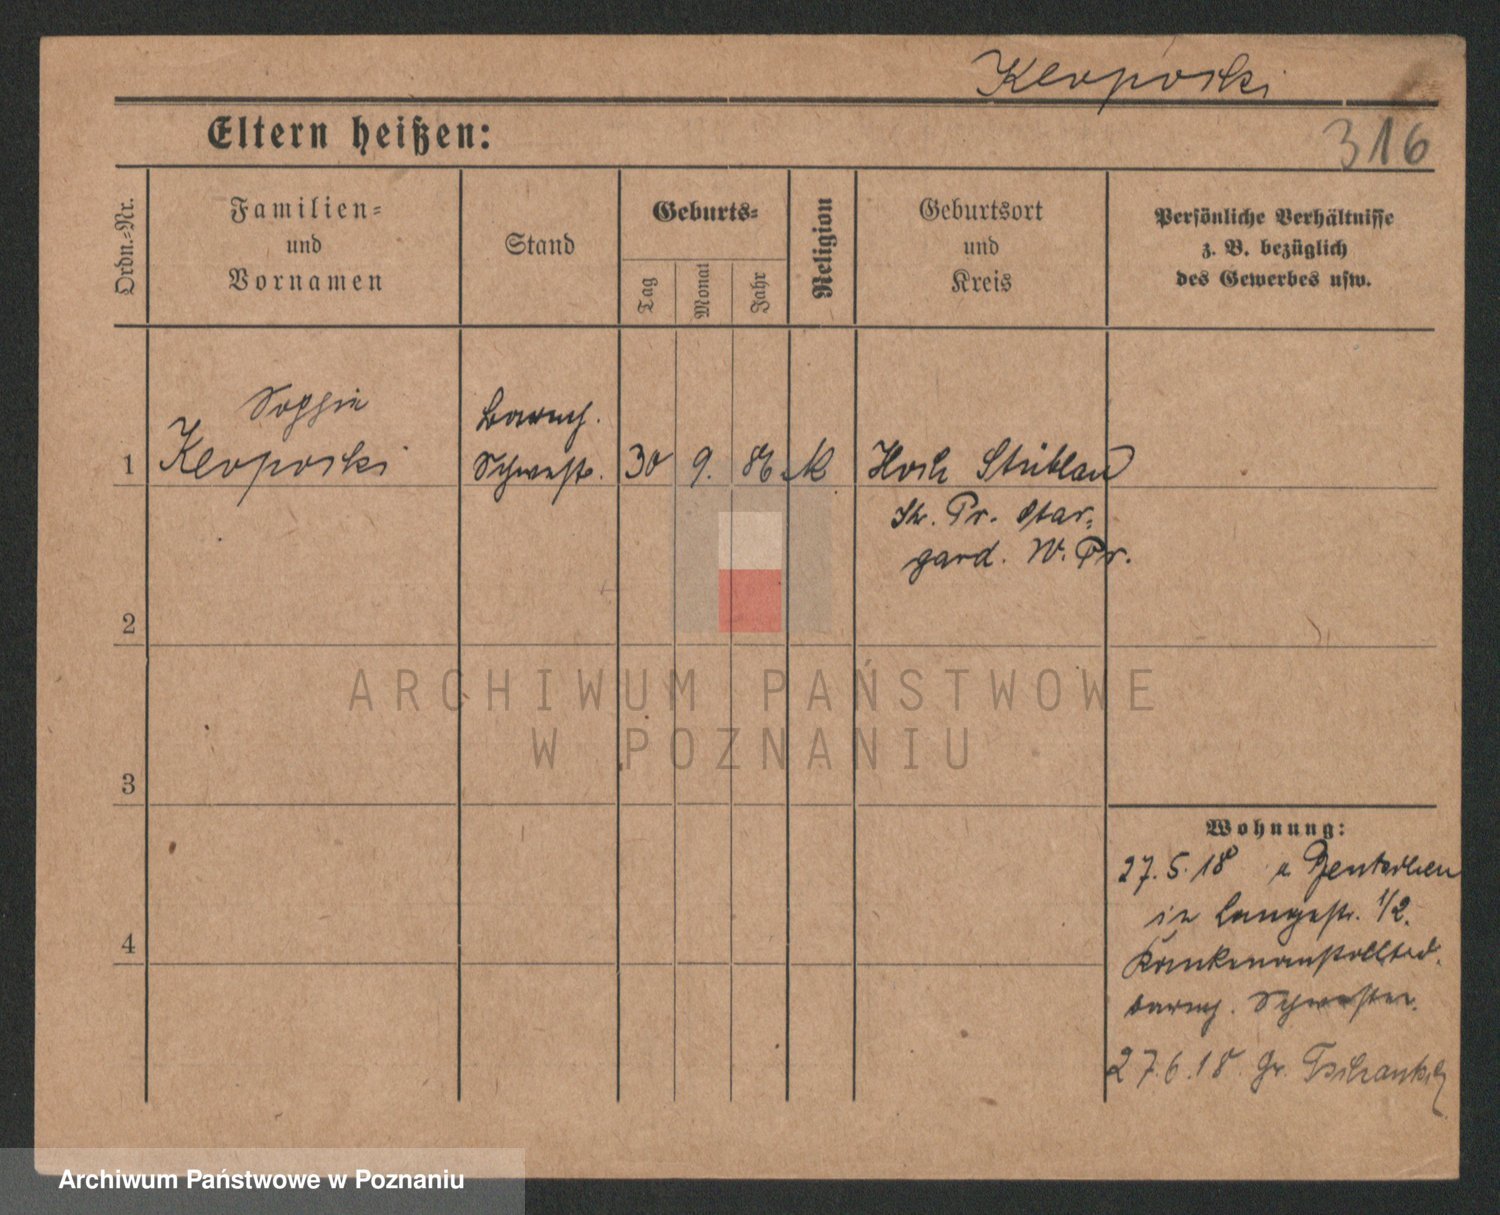 Kloposki
Eltern heißen:
316
Ordn.-Nr.
Familien-
und
Vornamen
Stand
Geburts-
Tag
Monat
Jahr
Religion
Geburtsort
und
Kreis
Persönliche Verhältnisse
z. B. bezüglich
des Gewerbes usw.
Sophie
Kloposki
barmh.
Schwest.
1
30
9.
86
K
Hoch Stüblau
Kr. Pr. Star-
gard. W. Pr.
2
3
4
Wohnung:
27.5.18
in Langestr. 1/2.
barmh. Schwester.
27.6.18. Gr.
ARCHIWUM PAŃSTWOWE
W POZNANIU
Archiwum Państwowe w Poznaniu